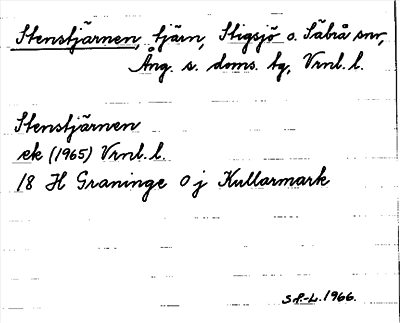 Stenstjärnen, tjärn, Stigsjö o. Säbrå snr,
Ång. s. doms. tg, Vrnl. l.
Stenstjärnen
ek (1965) Vrnl. l.
18 H Graninge 0 j Kullarmark
S P.-L. 1966.